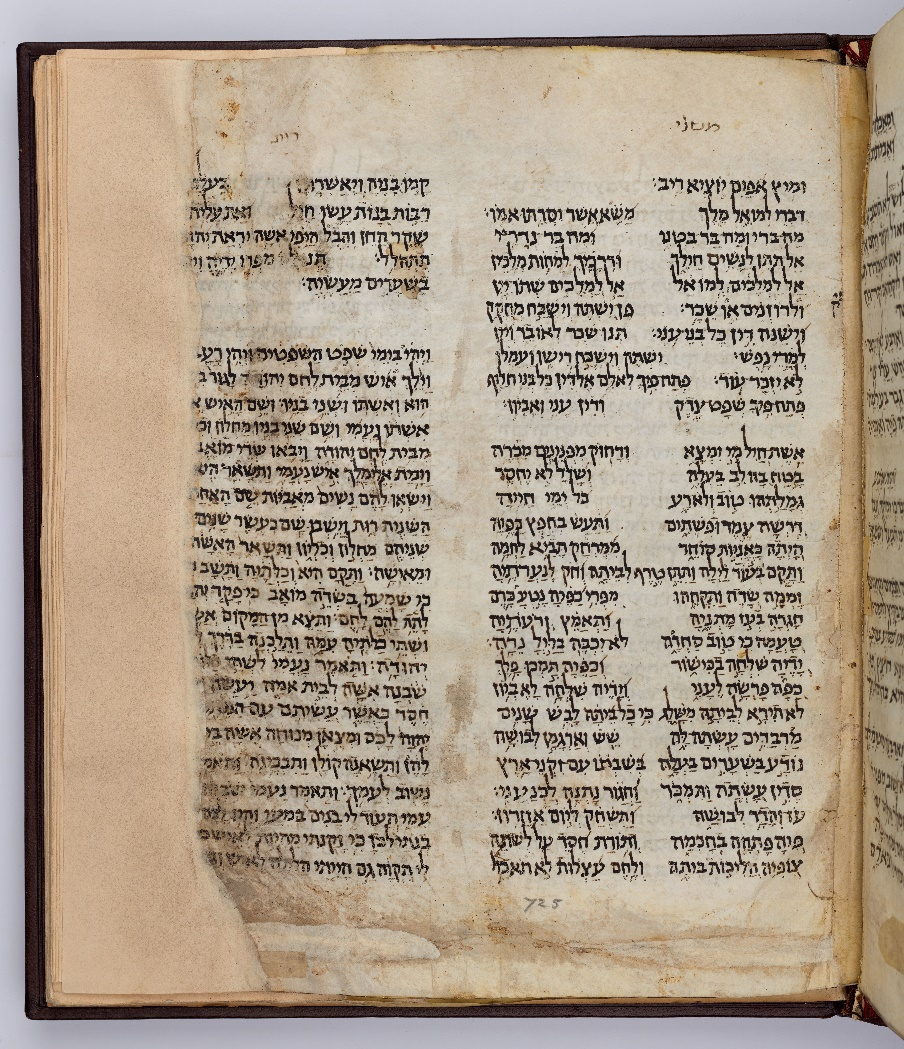 משלי
ומיץ אפים יוציא ריב:
דברי למואל מלך משא אשר יסרתו אמו:
מה ברי ומה בר בטני ומה בר נדרי
אל תתן לנשים חילך ודרכיך למחות מלכין
אל למלכים למואל אל למלכים שתו יין
ולרוזנים או שכר: פן ישתה וישכח מחקק
וישנה דין כל בני עני: תנו שכר לאובד ויין
למרי נפש: ישתה וישכח רישו ועמלו
לא יזכר עוד: פתח פיך לאלם אל דין כל בני חלוף
פתח פיך שפט צדק ודין עני ואביון:
אשת חיל מי ימצא ורחוק מפנינים מכרה
בטח בה לב בעלה ושלל לא יחסר
גמלתהו טוב ולא רע כל ימי חייה
דרשה צמר ופשתים ותעש בחפץ כפיה
היתה כאניות סוחר ממרחק תביא לחמה
ותקם בעוד לילה ותתן טרף לביתה וחק לנערתיה
זממה שדה ותקחהו מפרי כפיה נטע כרם
חגרה בעוז מתניה ותאמץ זרעותיה
טעמה כי טוב סחרה לא יכבה בלילה נרה:
ידיה שלחה בכישור וכפיה תמכו פלך
כפה פרשה לעני וידיה שלחה לאביון
לא תירא לביתה משלג כי כל ביתה לבש שנים
מרבדים עשתה לה שש וארגמן לבושה
נודע בשערים בעלה בשבתו עם זקני ארץ
סדין עשתה ותמכר וחגור נתנה לכנעני:
עוז והדר לבושה ותשחק ליום אחרון:
פיה פתחה בחכמה ותורת חסד על לשונה
צופיה הליכות ביתה ולחם עצלות לא תאכל
רות
קמו בניה ויאשרוה בעלה
רבות בנות עשו חיל ואת עלית
שקר החן והבל היופי אשה יראת יהו
תתהלל: תנו לה מפרי ידיה וי
בשערים מעשיה:
ויהי בימי שפט השפטים ויהי רעב
וילך איש מבית לחם יהודה לגור ב
הוא ואשתו ושני בניו: ושם האיש א
אשתו נעמי ושם שני בניו מחלון וכ
מבית לחם יהודה ויבאו שדי מואב
וימת אלימלך איש נעמי ותשאר הי
וישאו להם נשים מאביות שם האח
השנית רות וישבו שם כעשר שנים
שניהם מחלון וכליון ותשאר האשה
ומאישה: ותקם היא וכלתיה ותשב
כי שמעה בשדה מואב כי פקד יה
לתת להם לחם: ותצא מן המקום אש
ושתי כלתיה עמה ותלכנה בדרך ל
יהודה: ותאמר נעמי לשתי
שבנה אשה לבית אמה יעשה
חסד כאשר עשיתם עם המ
יהוה לכם ומצאן מנוחה אשה בי
להן ותשאנה קולן ותבכינה ותאמ
נשוב לעמך: ותאמר נעמי שב
עמי העוד לי בנים במעי והיו ל
בנתי לכן כי זקנתי מהיות לאיש כ
לי תקוה גם הייתי הלילה לאיש ו
725